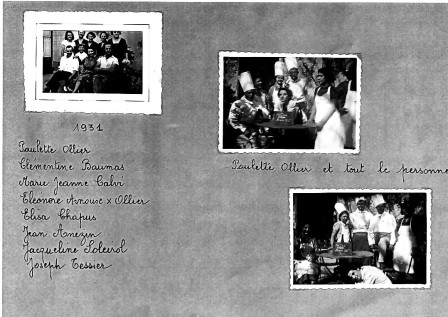 1931
Paulette Ollier
Clementine Baumas
Marie Jeanne Calvi
Eleonore Arnoux x Ollier
Elisa Chapus
Jean Anezin
Jacqueline Soleirol
Joseph Tessier
Paulette Ollier et tout le personne